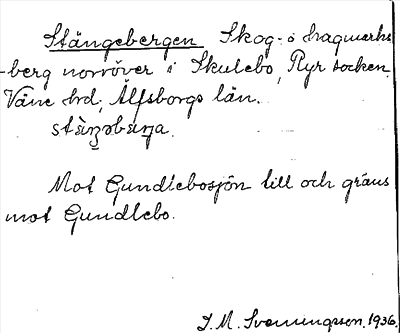 Stängebergen Skog- o hagmarks
-berg norröver i Skulebo, Ryr socken.
Väne hrd, Älfsborgs län.
stäŋəbärja.
Mot Gundlebosjön till och gräns
mot Gundlebo.
J. M. Svenningsson. 1936.